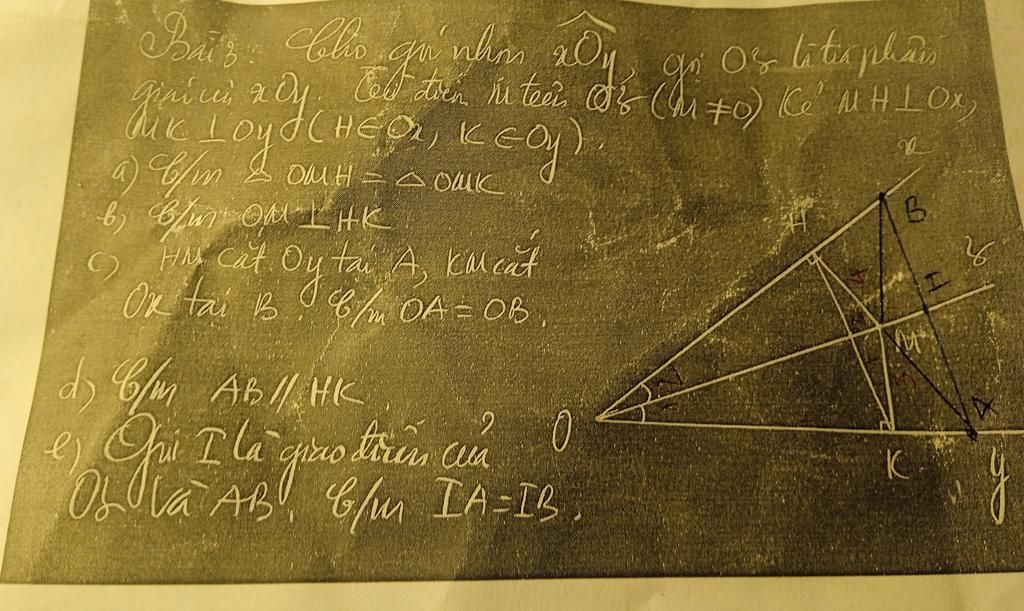 Bài 3. Cho góc nhọn xOy, gọi Oz là tia phân
giác của xOy. Từ điểm M trên Oz (M ≠ O) Kẻ MH ⊥ Ox,
MK ⊥ Oy (H ∈ Ox, K ∈ Oy).
a) C/m △ OMH = △ OMK
b) C/m OM ⊥ HK
c) HM cắt Oy tại A, KM cắt
Ox tại B. C/m OA = OB.
d) C/m AB // HK.
e) Gọi I là giao điểm của
Oz và AB. C/m IA = IB.
x
B
H
z
I
4
M
2
1
3
O
A
K
y